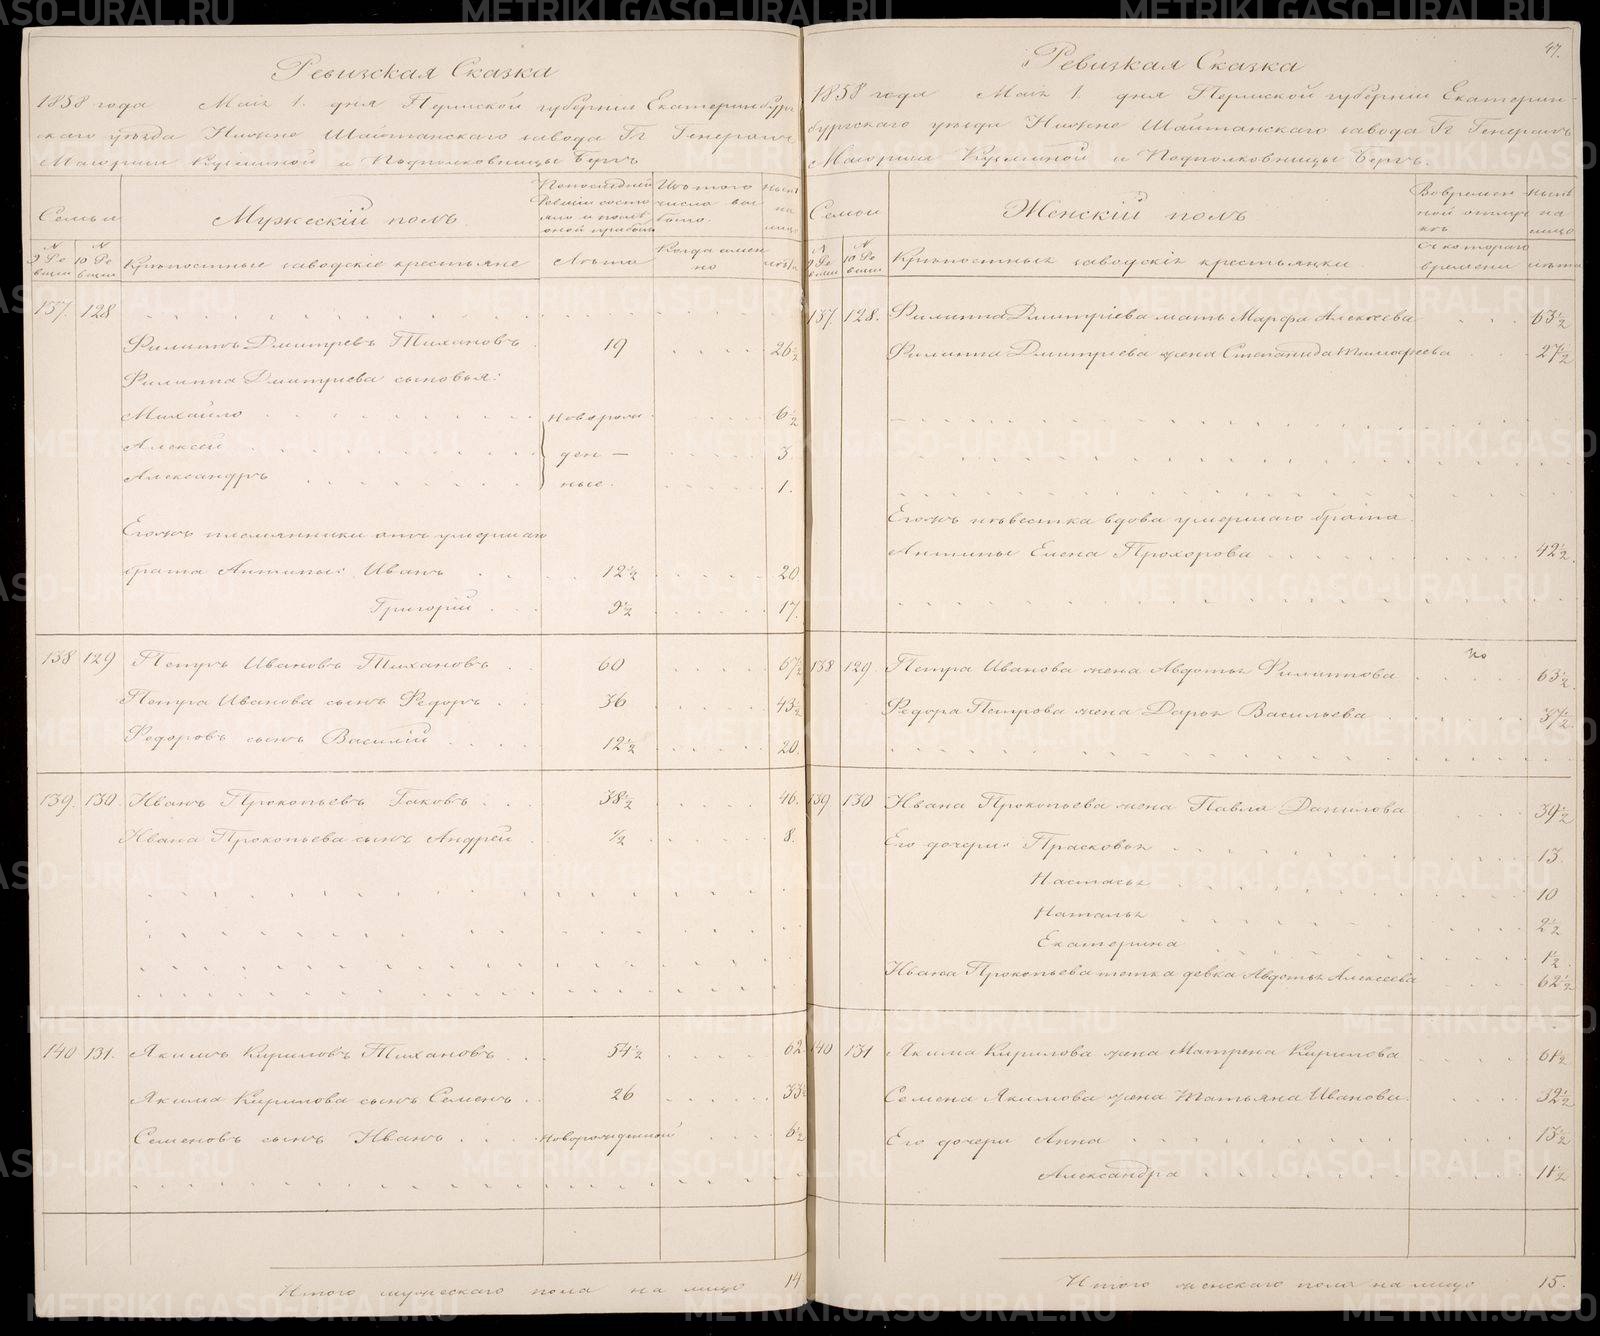 Ревизская Сказка
1858 года Маія 1. дня Пермской губерніи Екатеринбург-
скаго уѣзда Нижне Шайтанскаго завода Гг Генералъ
Маіорши Кузьминой и Подполковницы Бергъ
Семьи
Мужескій полъ
По последней Ревизіи состояло и после оной прибыло
Изъ того числа выбыло.
Ныне на лицо
№ 9 Ревизіи
№ 10 Ревизіи
Крѣпостные заводскіе крестьяне
Лѣта
Когда именно
лѣта
137. 128
Филиппъ Дмитревъ Тихановъ 19 26½
Филиппа Дмитріева сыновья:
Михайло новорож 6½
Алексѣй ден — 3
Александръ ные. 1.
Егожъ племянники отъ умершаго
брата Антипы: Иванъ 12½ 20.
Григорій 9½ 17.
138 129 Петръ Ивановъ Тихановъ 60 67½
Петра Иванова сынъ Федоръ 36 43½
Федоровъ сынъ Василій 12½ 20.
139. 130. Иванъ Прокопьевъ 38½ 46.
Ивана Прокопьева сынъ Андрей ½ 8.
140 131. Якимъ Кириловъ Тихановъ 54½ 62
Якима Кирилова сынъ Семенъ 26 33½
Семеновъ сынъ Иванъ Новорожденной 6½
Итого мужескаго пола на лицо 14
47.
Ревизкая Сказка
1858 года Маія 1. дня Пермской губерніи Екатерин-
бургскаго уезда Нижне Шайтанскаго завода Гг Генералъ
Маіорши Кузьминой и Подполковницы Бергъ.
Семьи
Женскій полъ
Во временной отлучкѣ
Ныне на лицо
№ 9 Ревизіи
№ 10 Ревизіи
Крѣпостныя заводскія крестьянки
Съ котораго времени
лѣта
137. 128. Филиппа Дмитріева мать Марфа Алексѣева 63½
Филиппа Дмитріева жена Степанида Тимофѣева 27½
Егожъ невестка вдова умершаго брата
Антипы Елена Прохорова 42½.
138 129. Петра Иванова жена Авдотья Филиппова 63½.
Федора Петрова жена Дарья Васильева 37½.
139 130 Ивана Прокопьева жена Павла Данилова 39½
Его дочери: Прасковья 13.
Настасья 10
Наталья 2½
Екатерина ½.
Ивана Прокопьева тетка девка Авдотья Алексѣева 62½
140 131 Якима Кирилова жена Матрена Кирилова 61½
Семена Якимова жена Татьяна Иванова. 32½
Его дочери Анна 13½
Александра 11½
Итого женскаго пола на лицо 15.
METRIKI.GASO-URAL.RU